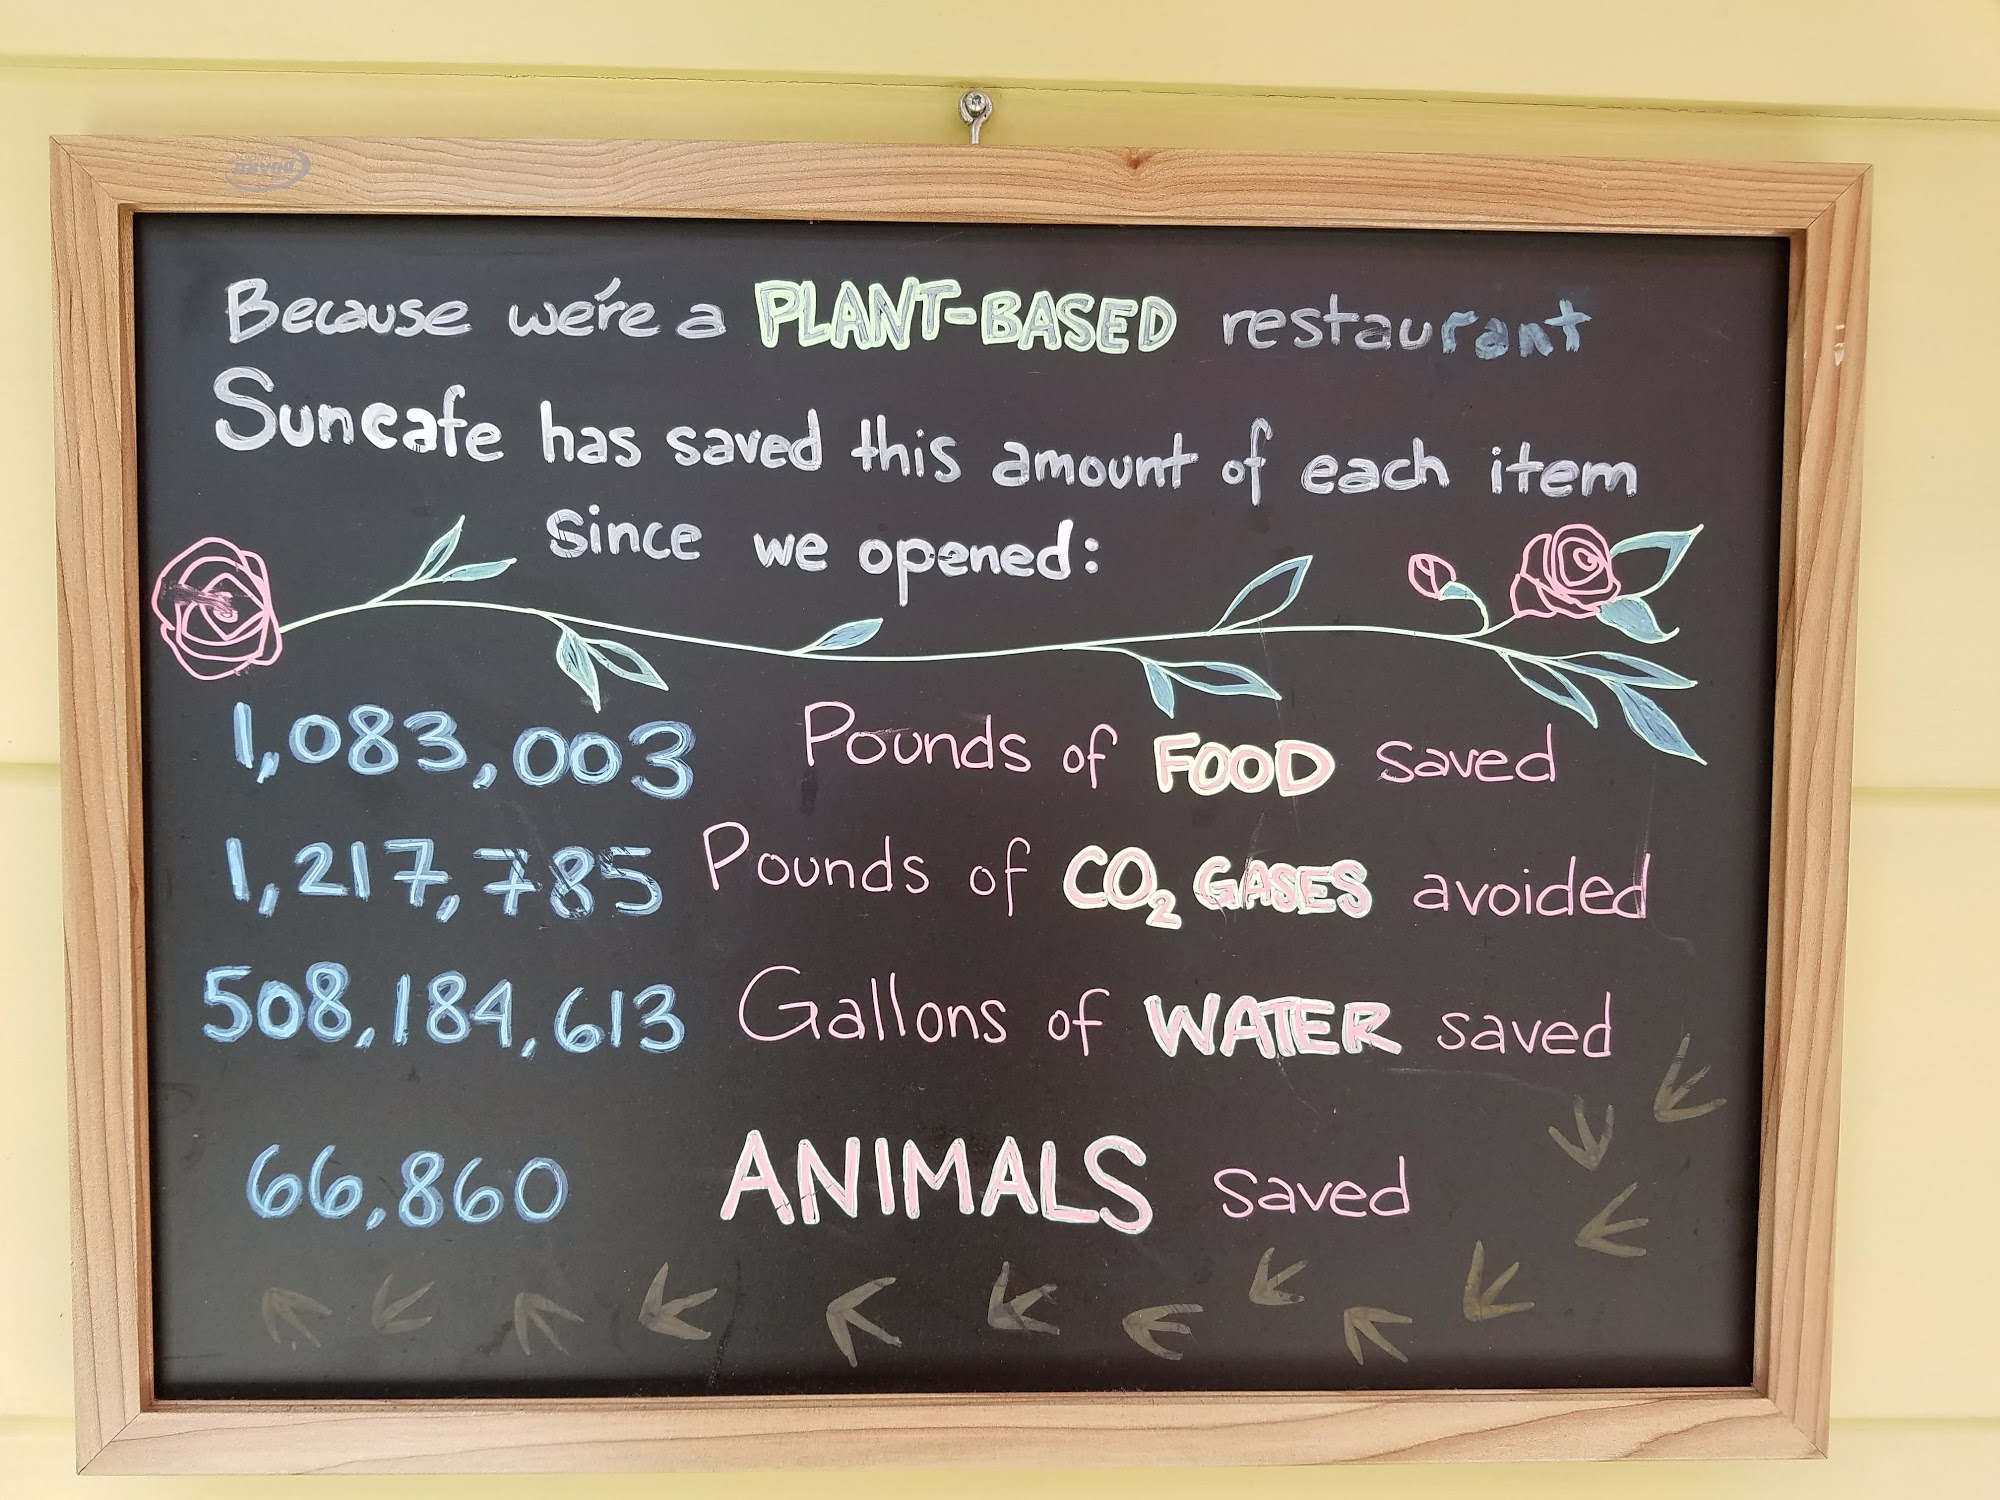 Because we're a PLANT-BASED restaurant
Suncafe has saved this amount of each item
since we opened:
1,083,003 Pounds of FOOD saved
1,217,785 Pounds of CO₂ GASES avoided
508,184,613 Gallons of WATER saved
66,860 ANIMALS saved